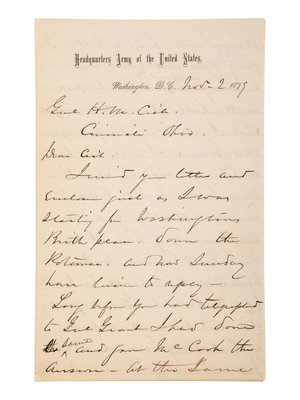 Headquarters Army of the United States.
Washington, D.C. Nov. 2 1879
Genl H. M. Cist.
Cincinnati Ohio.
Dear Cist.
I recd your letter and
enclosure just as I was
starting for Washingtons
Birth place. down the
Potomac, and now Sunday
have time to reply —
Long before you had telegraphed
to Genl Grant I had done
the same and gave McCook the
answer — At the same